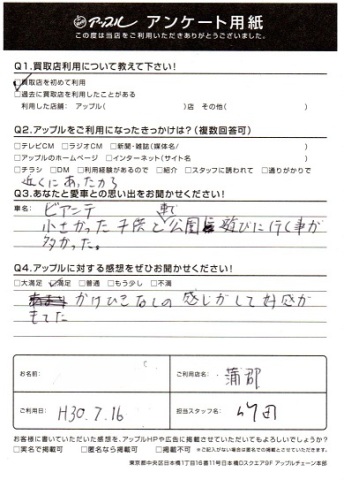 アップル アンケート用紙
この度は当店をご利用いただきありがとうございました。
Q1.買取店利用について教えて下さい!
☑買取店を初めて利用
□過去に買取店を利用したことがある
利用した店舗: アップル( )店 その他( )
Q2.アップルをご利用になったきっかけは?(複数回答可)
□テレビCM □ラジオCM □新聞・雑誌(媒体名/ )
□アップルのホームページ □インターネット(サイト名 )
□チラシ □DM □利用経験があるので □紹介 □スタッフに誘われて □通りがかりで
近くにあったから
Q3.あなたと愛車との思い出をお聞かせください!
車名: ビアンテ
小さかった子供と車で公園に遊びに行く事が
多かった。
Q4.アップルに対する感想をぜひお聞かせください!
□大満足 ☑満足 □普通 □もう少し □不満
かけひきなしの感じがして好感が
もてた
お名前:
ご利用店名: 蒲郡
ご利用日: H30.7.16
担当スタッフ名: 竹田
お客様に書いていただいた感想を、アップルHPや広告に掲載させていただいてもよろしいでしょうか?
□実名で掲載可 □匿名なら掲載可 □不可 ※ご記入がない場合は匿名での掲載とさせていただきます。
東京都中央区日本橋1丁目16番11号日本橋Dスクエア3F アップルチェーン本部